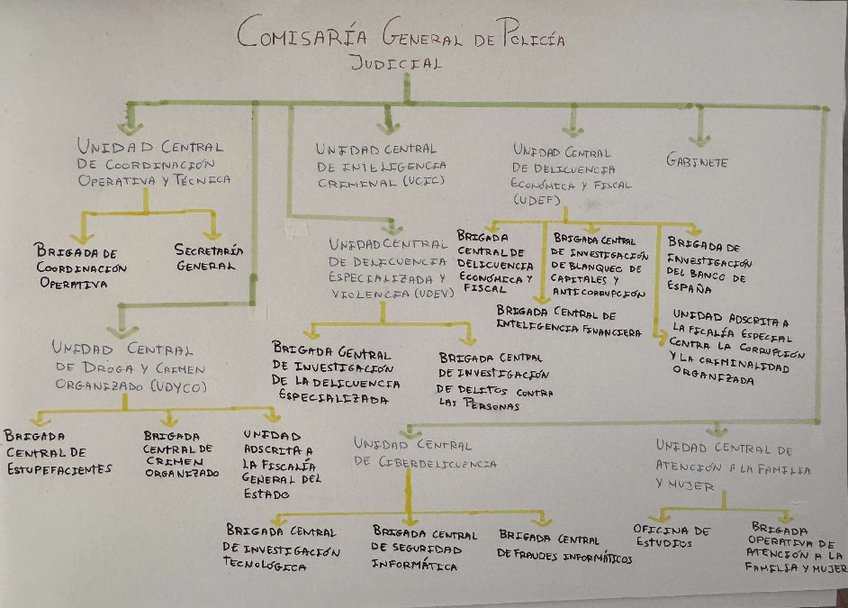 COMISARÍA GENERAL DE POLICÍA
JUDICIAL
UNIDAD CENTRAL
DE COORDINACIÓN
OPERATIVA Y TÉCNICA
UNIDAD CENTRAL
DE INTELIGENCIA
CRIMINAL (UCIC)
UNIDAD CENTRAL
DE DELICUENCIA
ECONÓMICA Y FISCAL
(UDEF)
GABINETE
BRIGADA DE
COORDINACIÓN
OPERATIVA
SECRETARÍA
GENERAL
UNIDAD CENTRAL
DE DELICUENCIA
ESPECIALIZADA Y
VIOLENCIA (UDEV)
BRIGADA
CENTRAL DE
DELICUENCIA
ECONÓMICA Y
FISCAL
BRIGADA CENTRAL
DE INVESTIGACIÓN
DE BLANQUEO DE
CAPITALES Y
ANTICORRUPCIÓN
BRIGADA DE
INVESTIGACIÓN
DEL BANCO DE
ESPAÑA
BRIGADA CENTRAL DE
INTELIGENCIA FINANCIERA
UNIDAD ADSCRITA A
LA FISCALÍA ESPECIAL
CONTRA LA CORRUPCIÓN
Y LA CRIMINALIDAD
ORGANIZADA
UNIDAD CENTRAL
DE DROGA Y CRIMEN
ORGANIZADO (UDYCO)
BRIGADA CENTRAL
DE INVESTIGACIÓN
DE LA DELICUENCIA
ESPECIALIZADA
BRIGADA CENTRAL
DE INVESTIGACIÓN
DE DELITOS CONTRA
LAS PERSONAS
BRIGADA
CENTRAL DE
ESTUPEFACIENTES
BRIGADA
CENTRAL DE
CRIMEN
ORGANIZADO
UNIDAD
ADSCRITA A
LA FISCALÍA
GENERAL DEL
ESTADO
UNIDAD CENTRAL
DE CIBERDELICUENCIA
UNIDAD CENTRAL DE
ATENCIÓN A LA FAMILIA
Y MUJER
BRIGADA CENTRAL
DE INVESTIGACIÓN
TECNOLÓGICA
BRIGADA CENTRAL
DE SEGURIDAD
INFORMÁTICA
BRIGADA CENTRAL
DE FRAUDES INFORMÁTICOS
OFICINA DE
ESTUDIOS
BRIGADA
OPERATIVA DE
ATENCIÓN A LA
FAMILIA Y MUJER